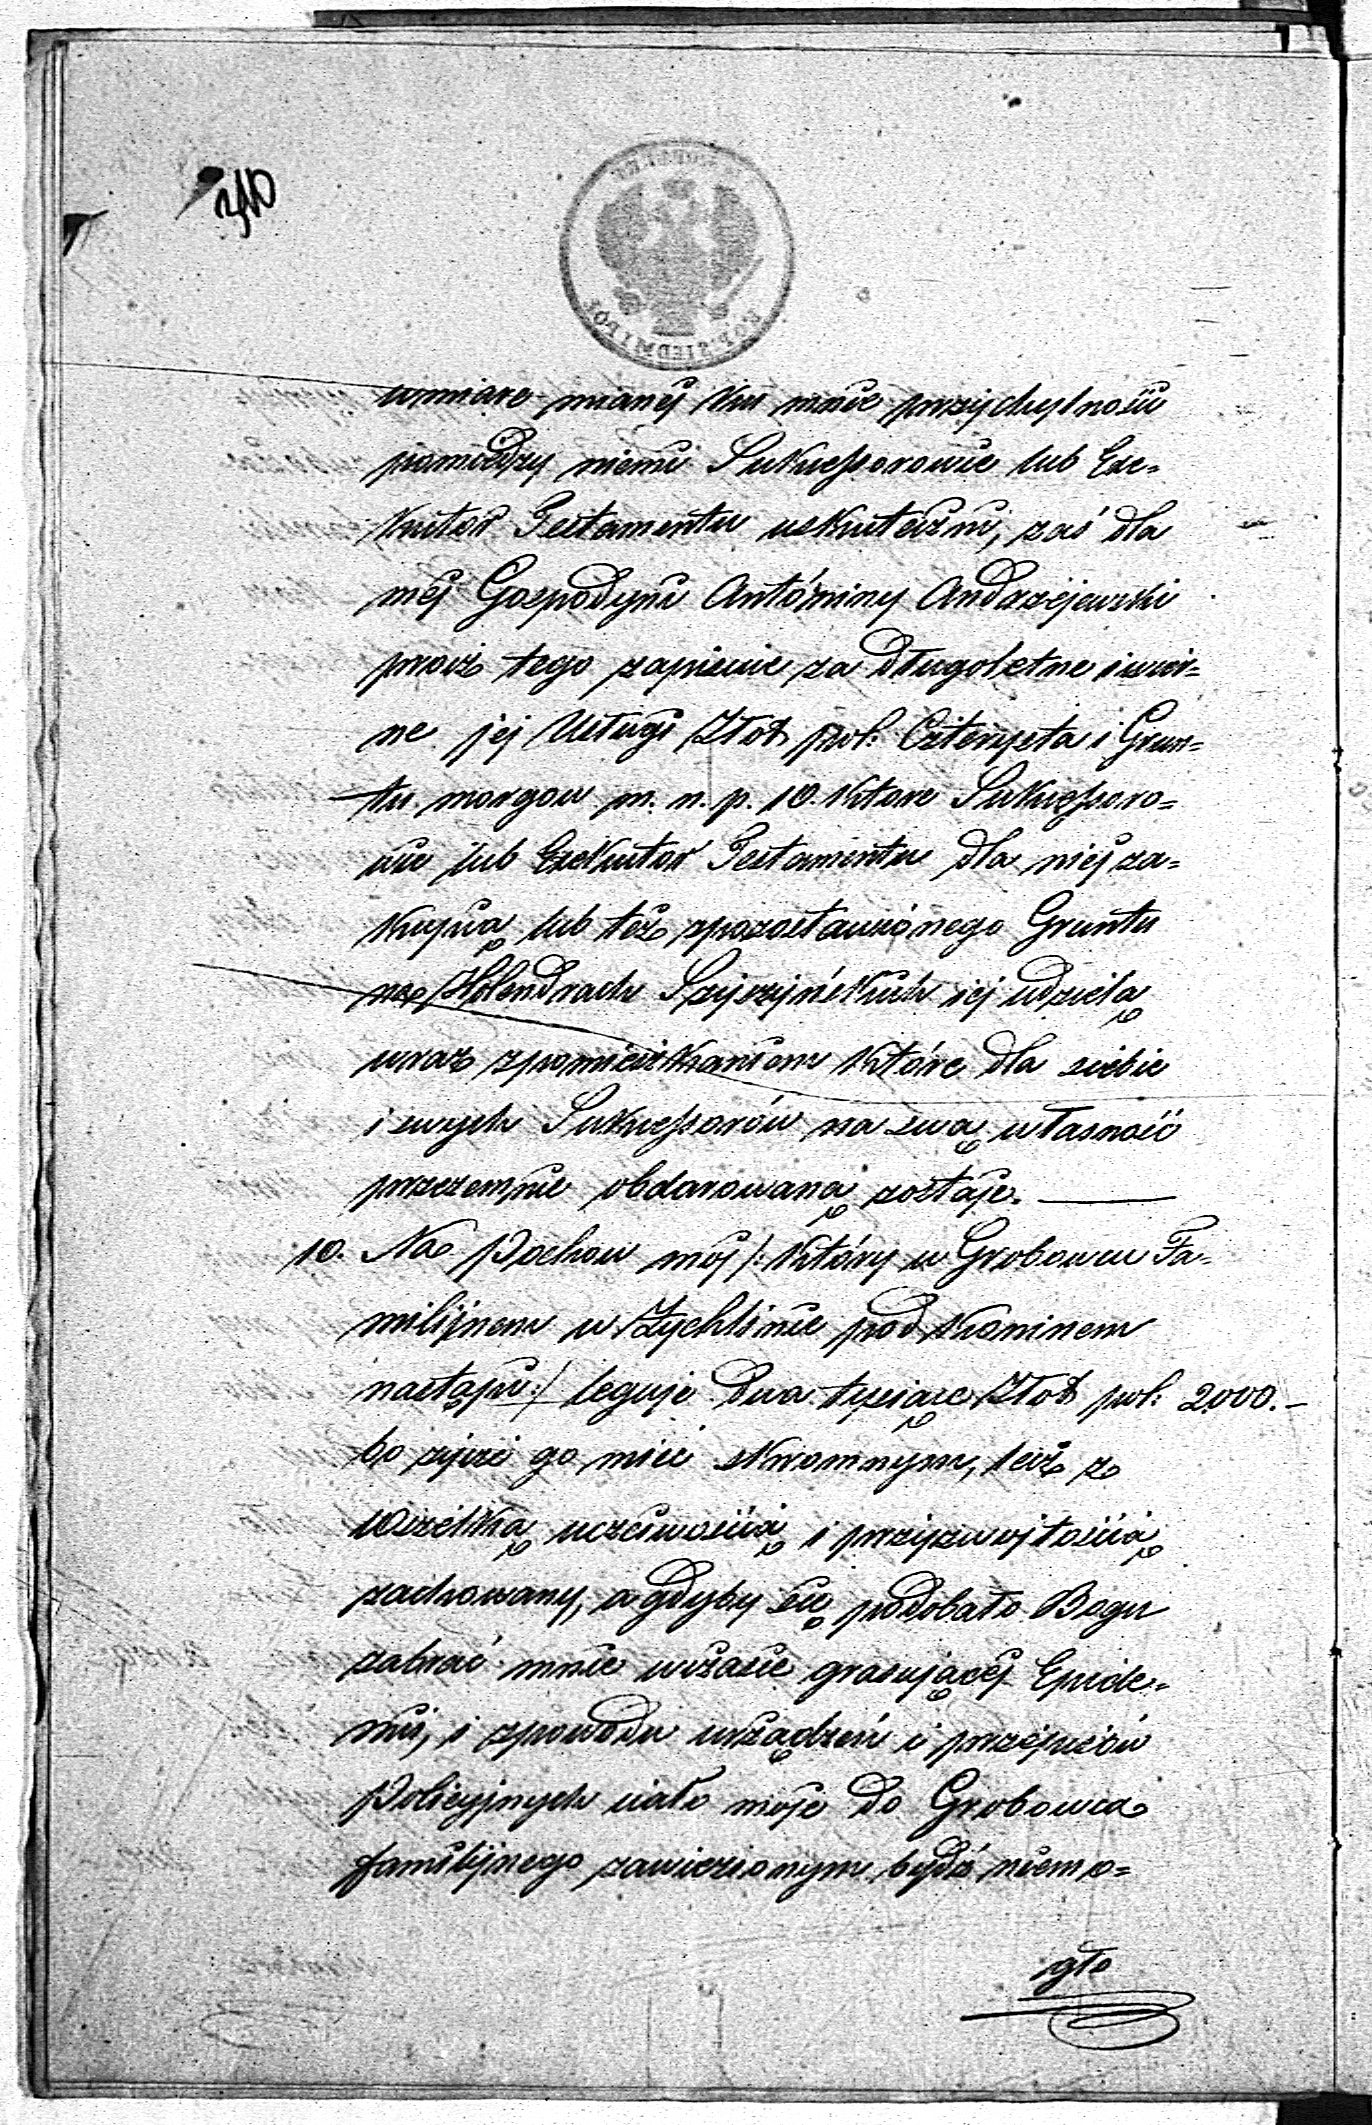 310
KOP: SIEDM I PÓŁ
wmiarę mianej ku mnie przychylności
pomiędzy niemi Sukcessorowie lub Exe-
kutor Testamentu uskuteczni, zaś dla
mej Gospodyni Antóniny Andrzejewski
prócz tego zapisuie za długoletne i wier-
ne jej Usługi Złot. pol: Czterysta i Grun-
tu morgow m. n. p. 10. ktore Sukcessoro-
wie lub Exekutor Testamentu dla niej za-
kupią lub też zpozostawionego Gruntu
na Holendrach Szyszyńskich iej udzielą
wraz zpomieszkaniem które dla siebie
i swych Sukcessorów na swą własność
przezemnie obdarowaną zostaje.
10. Na Pochow moj /: który w Grobowcu Fa-
milijnem w Żychlinie pod Koninem
nastąpi :/ leguję dwa tysiące Złot pol: 2000.-
bo życzę go mieć skromnym, lecz z
wszelką uczciwością i przyzwojtością
zachowany, a gdyby się podobało Bogu
zabrać mnie wczasie grasującej Epide-
mij, i zpowodu urządzeń i przepisów
Policyjnych ciało moje do Grobowca
familijnego zawiezionym bydź niemo-
gło